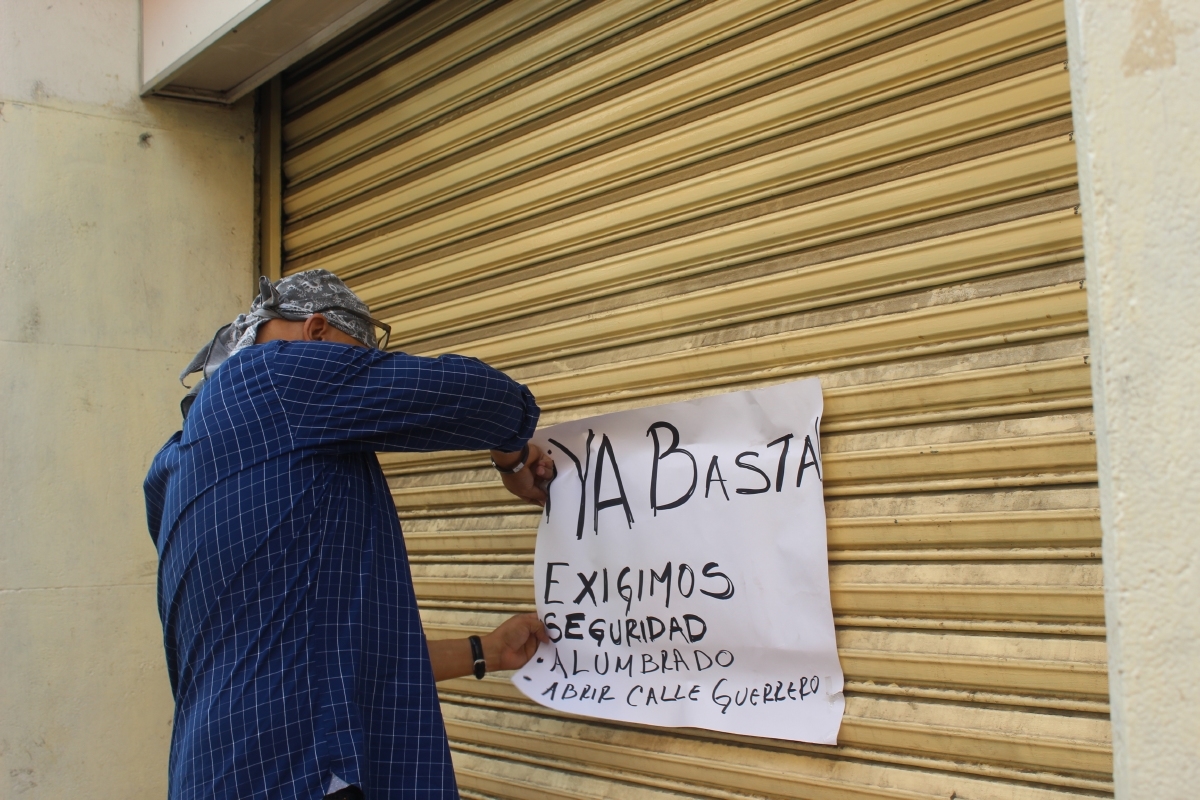 ¡YA BASTA!
EXIGIMOS
SEGURIDAD
• ALUMBRADO
• ABRIR CALLE GUERRERO